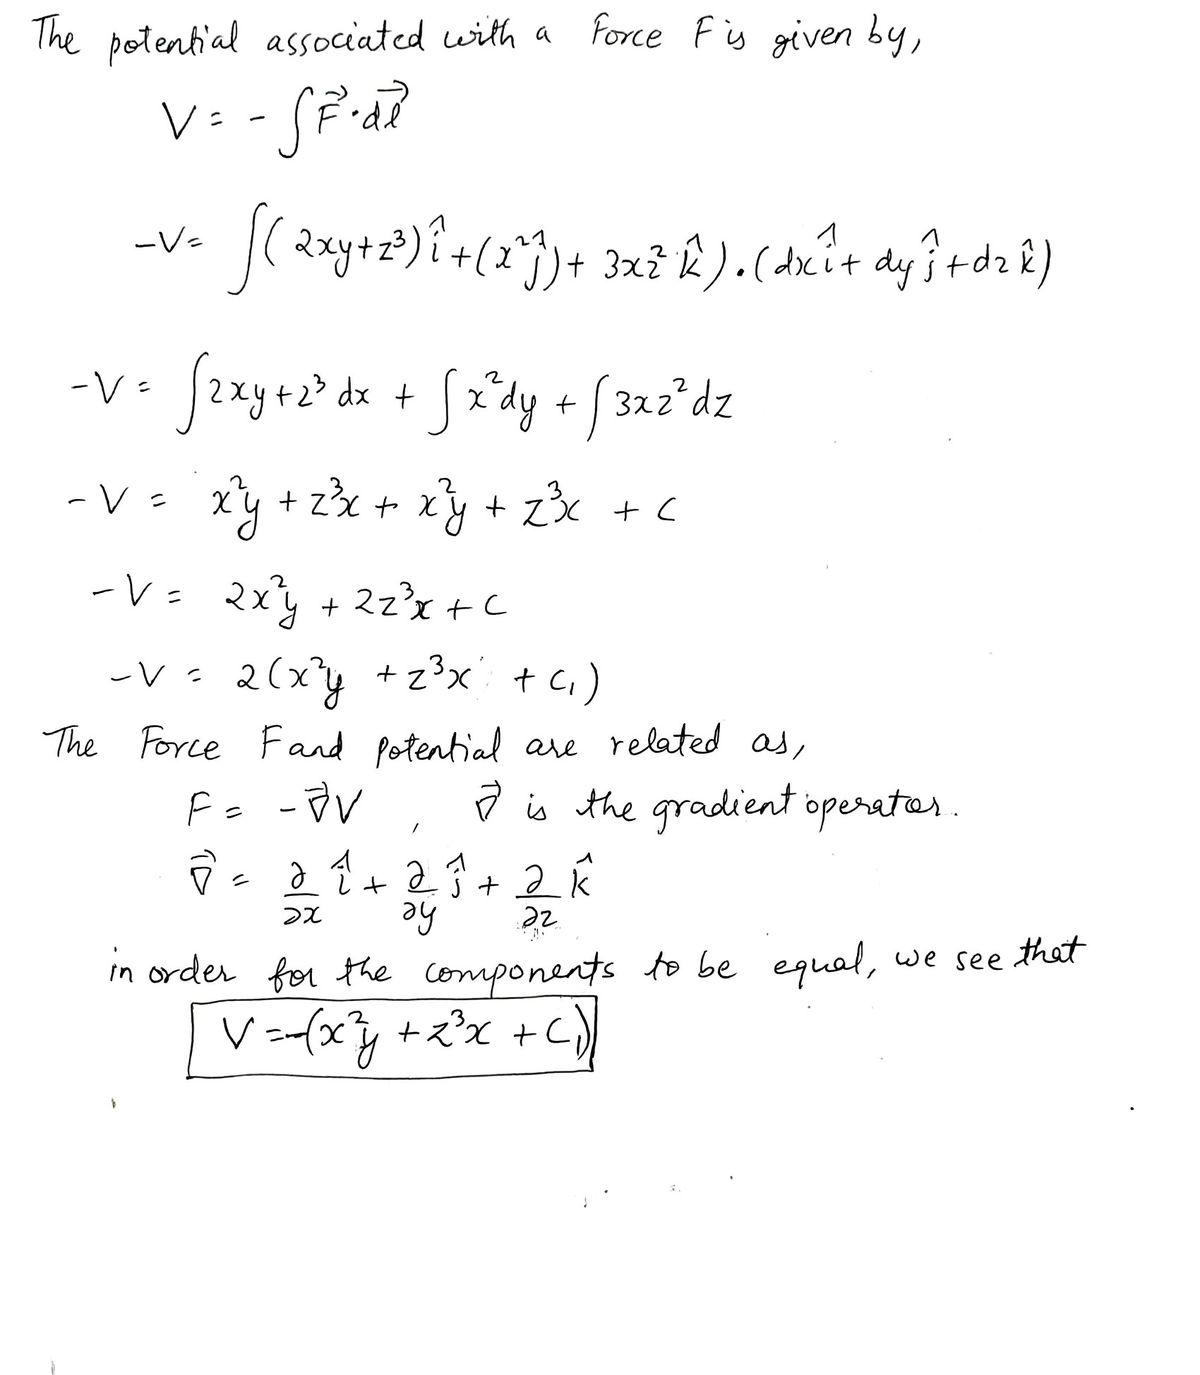 The potential associated with a Force F is given by,
V = - ∫F⃗·dl⃗
-V = ∫( 2xy+z³) î + (x² ĵ) + 3xz² k̂ ) . ( dx î + dy ĵ + dz k̂ )
-V = ∫2xy+z³ dx + ∫x²dy + ∫3xz²dz
-V = x²y + z³x + x²y + z³x + c
-V = 2x²y + 2z³x + C
-V = 2(x²y + z³x + C₁)
The Force F and potential are related as,
F = -∇⃗V , ∇⃗ is the gradient operator.
∇⃗ = ∂/∂x î + ∂/∂y ĵ + ∂/∂z k̂
in order for the components to be equal, we see that
V = -(x²y + z³x + C₁)